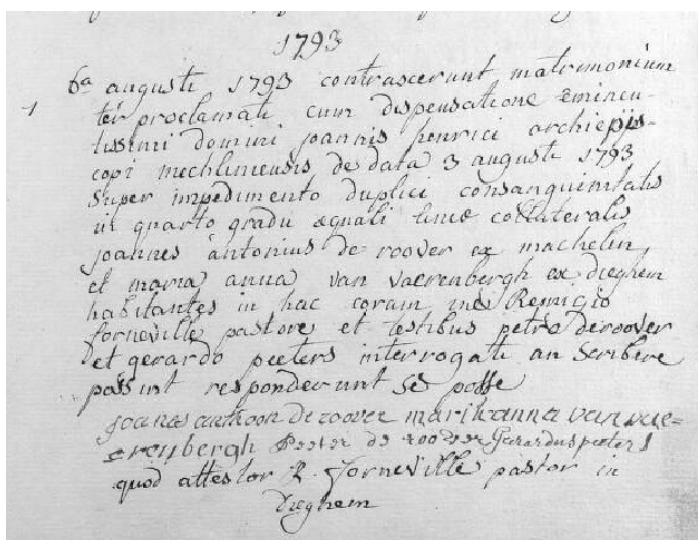 1793
1 6a augusti 1793 contraxerunt matrimonium
ter proclamati cum dispensatione Eminen-
tissimi domini joannis henrici archiepis-
copi mechliniensis de data 3 augusti 1793
super impedimento duplici consanguinitatis
in quarto gradu æquali lineæ collateralis
joannes antonius de roover ex machelen
et maria anna van vaerenbergh ex dieghem
habitantes in hac coram me Remigio
forneville pastore et testibus petro de roover
et gerardo peeters interrogati an scribere
possint responderunt se posse
joanes anthoon de roover marihanna van vae=
erenbergh Peeter de roover Gerardus peeters
quod attestor R. Forneville pastor in
Dieghem